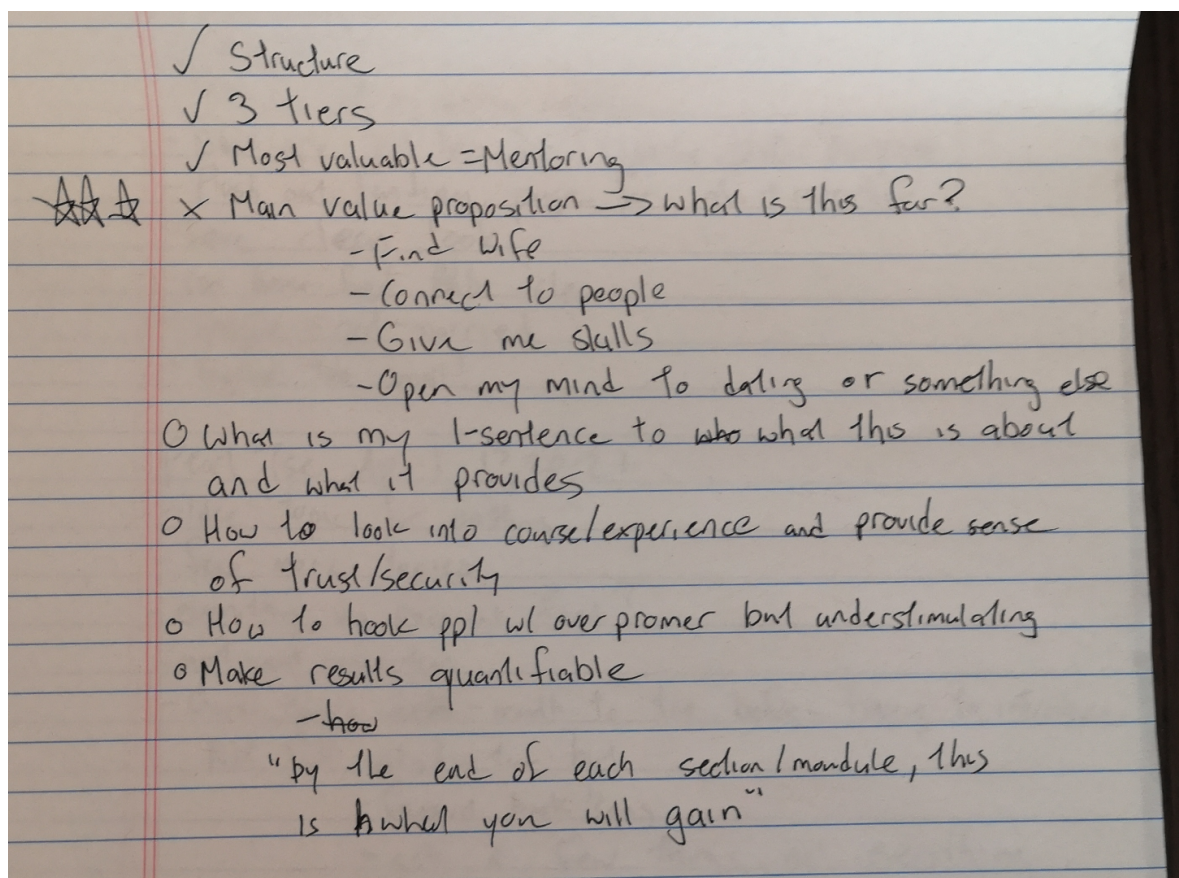 ✓ Structure
✓ 3 tiers
✓ Most valuable = Mentoring
☆☆☆ × Main value proposition → what is this for?
- Find wife
- Connect to people
- Give me skills
- Open my mind to dating or something else
○ What is my 1-sentence to who what this is about
and what it provides
○ How to look into course/experience and provide sense
of trust/security
○ How to hook ppl w/ over but understimulating
○ Make results quantifiable
- how
"By the end of each section/mondule, this
is what you will gain"